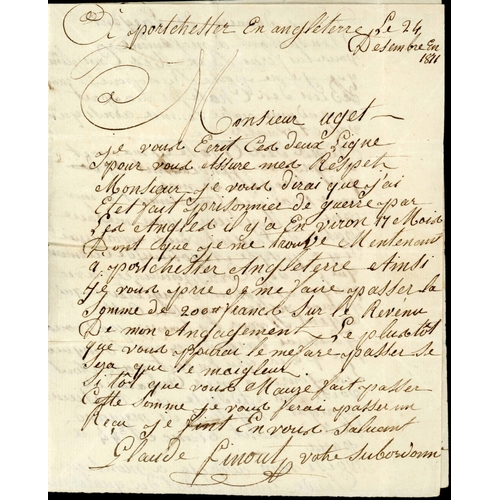 A portchester En angleterre Le 24
Desembre En
1811
A Monsieur uget
je vous Ecrit Ces deux Ligne
pour vous assure mes Respet
Monsieur je vous dirai que j'ai
Etet fait prisonnier de guerre par
Les Angles il y a En viron 17 Mois
Dont que je me trouve Mintenant
a portchester Angleterre Ainsi
je vous prie de me faire passer la
Somme de 200# francs Sur le Revenu
De mon Angagement Le plus tôt
que vous pourai le me fare passer se
Sera que le
Si tôt que vous Maure fait passer
Cette Somme je vous ferai passer un
Reçu je finit En vous Saluant
Glaude Finout votre subordonné